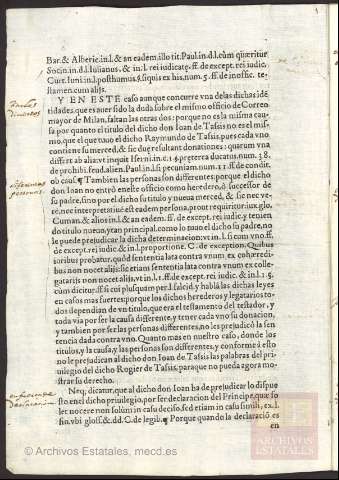 Bar. & Alberic. in. l. & an eadem. illo tit. Paul. in. d. l. cùm quæritur
Socin. in. d. l. Iulianus. & in. l. rei iudicatæ. ff. de except. rei iudic.
Curt. Iuni. in. l. posthumus. § si quis ex his. num. 5. ff. de inoffic. te-
stamen. cum alijs.
Y EN ESTE caso aunque concurre vna de las dichas idé
tidades, que es auer sido la duda sobre el mismo officio de Correo
mayor de Milan, faltan las otras dos: porque no es la misma cau-
sa por quanto el titulo del dicho don Ioan de Tassis no es el mis-
mo, que el que tuuo el dicho Raymundo de Tassis, pues cada vno
contiene su merced, & sic duæ resultant donationes: quarum vna
differt ab alia. vt inquit Iserni. in c. 1. § præterea ducatus. num. 18.
de prohib. feud. alien. Paul. in. l. si pecuniam. num. 11. ff. de condit.
ob caus. ¶ Tambien las personas son differentes: porque el dicho
don Ioan no entró en este officio como heredero, o successor de
su padre, sino por el dicho su titulo y nueua merced, & sic nec ve-
re, nec interpretatiuè est eadem persona, prout requiritur. iux. glo.
Cuman. & alios in l. & an eadem. ff. de except. rei iudic. y tenien
do titulo nueuo, y tan principal, como lo tuuo el dicho su padre, no
le puede prejudicar la dicha determinacion: vt in. l. si cum vno. ff.
de except. rei iudic. & in l. proportione. C. de exception. Quibus
iuribus probatur, quòd sententia lata contra vnum ex cohæredi-
bus non nocet alijs: sic etiam sententia lata contra vnum ex colle-
gatarijs non nocet alijs. vt in. l. 1. ff. de except. rei iudic. & in l. 15.
cùm dicitur. ff. si cui plusquam per l. falcid. y habla las dichas leyes
en casos mas fuertes: porque los dichos herederos y legatarios to-
dos dependian de vn titulo, que era el testamento del testador, y
toda via por ser la causa differente, y tener cada vno su donacion,
y tambien por ser las personas differentes, no les prejudicó la sen-
tencia dada contra vno. Quanto mas en nuestro caso, donde los
titulos, y la causa, y las personas son differentes, y conforme á esto
no le prejudican al dicho don Ioan de Tassis las palabras del pri-
uilegio del dicho Rogier de Tassis, para que no pueda agora mo-
strar su derecho.
Neq; dicatur, que al dicho don Ioan ha de prejudicar lo dispue
sto en el dicho priuilegio, por ser declaracion del Principe, quæ so
let nocere non solùm in casu deciso, sed etiam in casu simili, ex. l.
fin. vbi gloss. & dd. C. de legib. ¶ Porque quando la declaració es
en
ARCHIVOS
ESTATALES
© Archivos Estatales, mecd.es